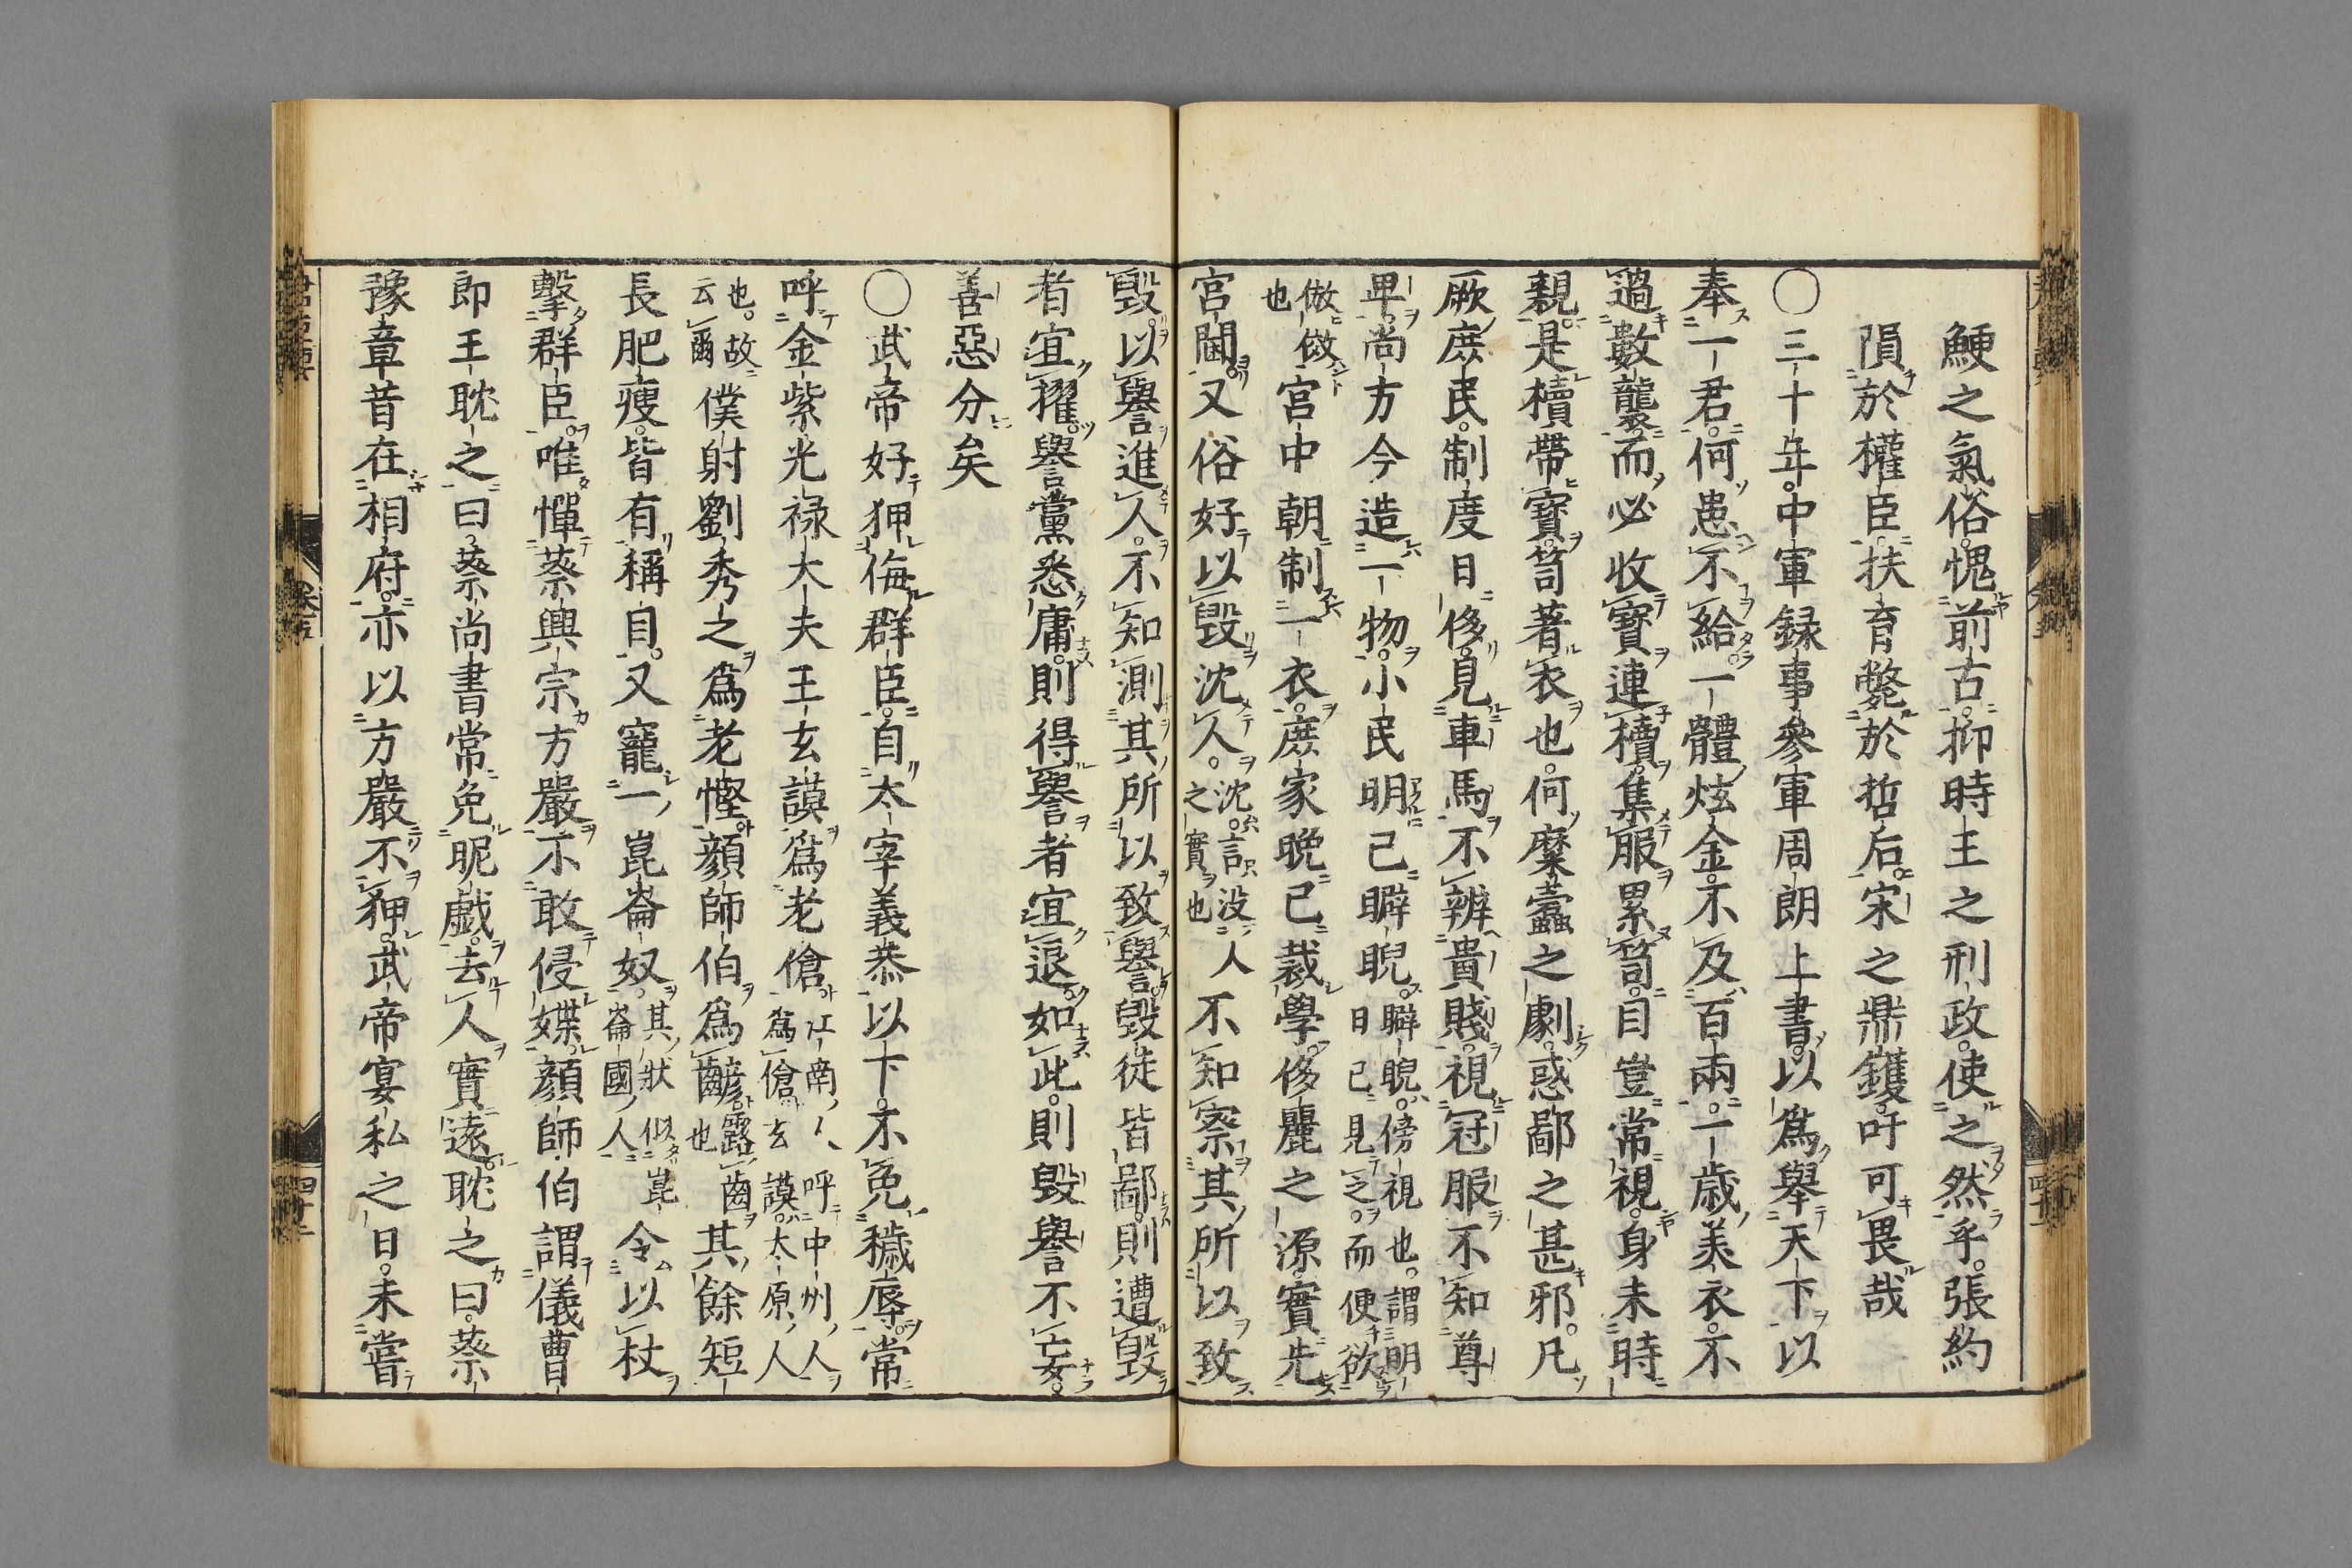 鯁之氣俗愧前古抑時王之刑政使之然乎張約
隕於權臣扶育斃於哲后宋之鼎鑊吁可畏哉
〇三十年中軍録事參軍周朗上書以爲舉天下以
奉一君何患不給一體炫金不及百兩一歳美衣不
過數襲而必收寶連櫝集服累笥目豈常視身未時
親是櫝帶寶笥著衣也何糜蠹之劇惑鄙之甚邪凡
厥庶民制度日侈見車馬不辨貴賤視冠服不知尊
卑尚方今造一物小民明已睥睨睥睨傍視也謂明日已見之而便欲
倣傚也宮中朝制一衣庶家晩已裁學侈麗之源實先
宮閫又俗好以毀沈人沈言没人之實也不知察其所以致
毀以譽進人不知測其所以致譽毀徒皆鄙則遭毀
者宜擢譽黨悉庸則得譽者宜退如此則毀譽不妄
善惡分矣
〇武帝好狎侮群臣自太宰義恭以下不免穢辱常
呼金紫光禄大夫王玄謨爲老傖江南人呼中州人爲傖玄謨太原人
也故云爾僕射劉秀之爲老慳顔師伯爲齴齴露齒也其餘短
長肥瘦皆有稱目又寵一崑崙奴其狀似崑崙國人令以杖
擊群臣唯憚蔡興宗方嚴不敢侵媟顔師伯謂儀曹
郎王耽之曰蔡尚書常免昵戯去人實遠耽之曰蔡
豫章昔在相府亦以方嚴不狎武帝宴私之日未嘗